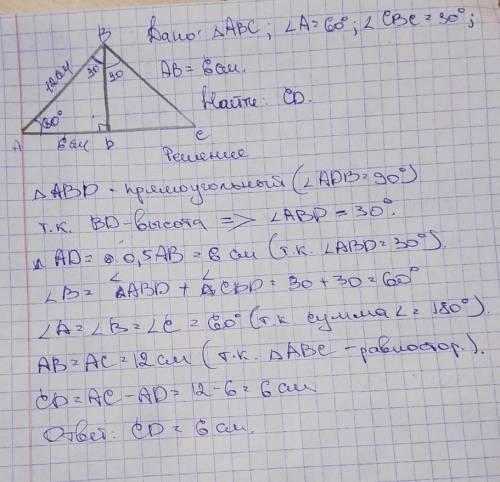 Дано: △ABC; ∠A=60°; ∠CBE=30°;
AB= 6см.
Найти: CD.
B
12см
30
30
60°
A
6см
D
C
Решение
△ABD - прямоугольный (∠ADB=90°)
т.к. BD-высота => ∠ABD = 30°.
AD= 0,5AB= 6 см (т.к. ∠ABD=30°).
∠B= ∠ABD + ∠CBD = 30+30=60°
∠A=∠B=∠C = 60° (т.к. сумма ∠ = 180°)
AB=AC=12 см (т.к. △ABC - равностор.).
CD=AC-AD=12-6=6 см
Ответ: CD = 6 см.